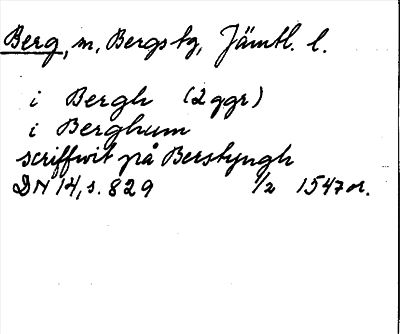 Berg, m, Bergs tg, Jämtl. l.
i Bergh (2 ggr)
i Berghum
scriffwit på Berstyngh
DN 14, s. 829 1/2 1547 or.